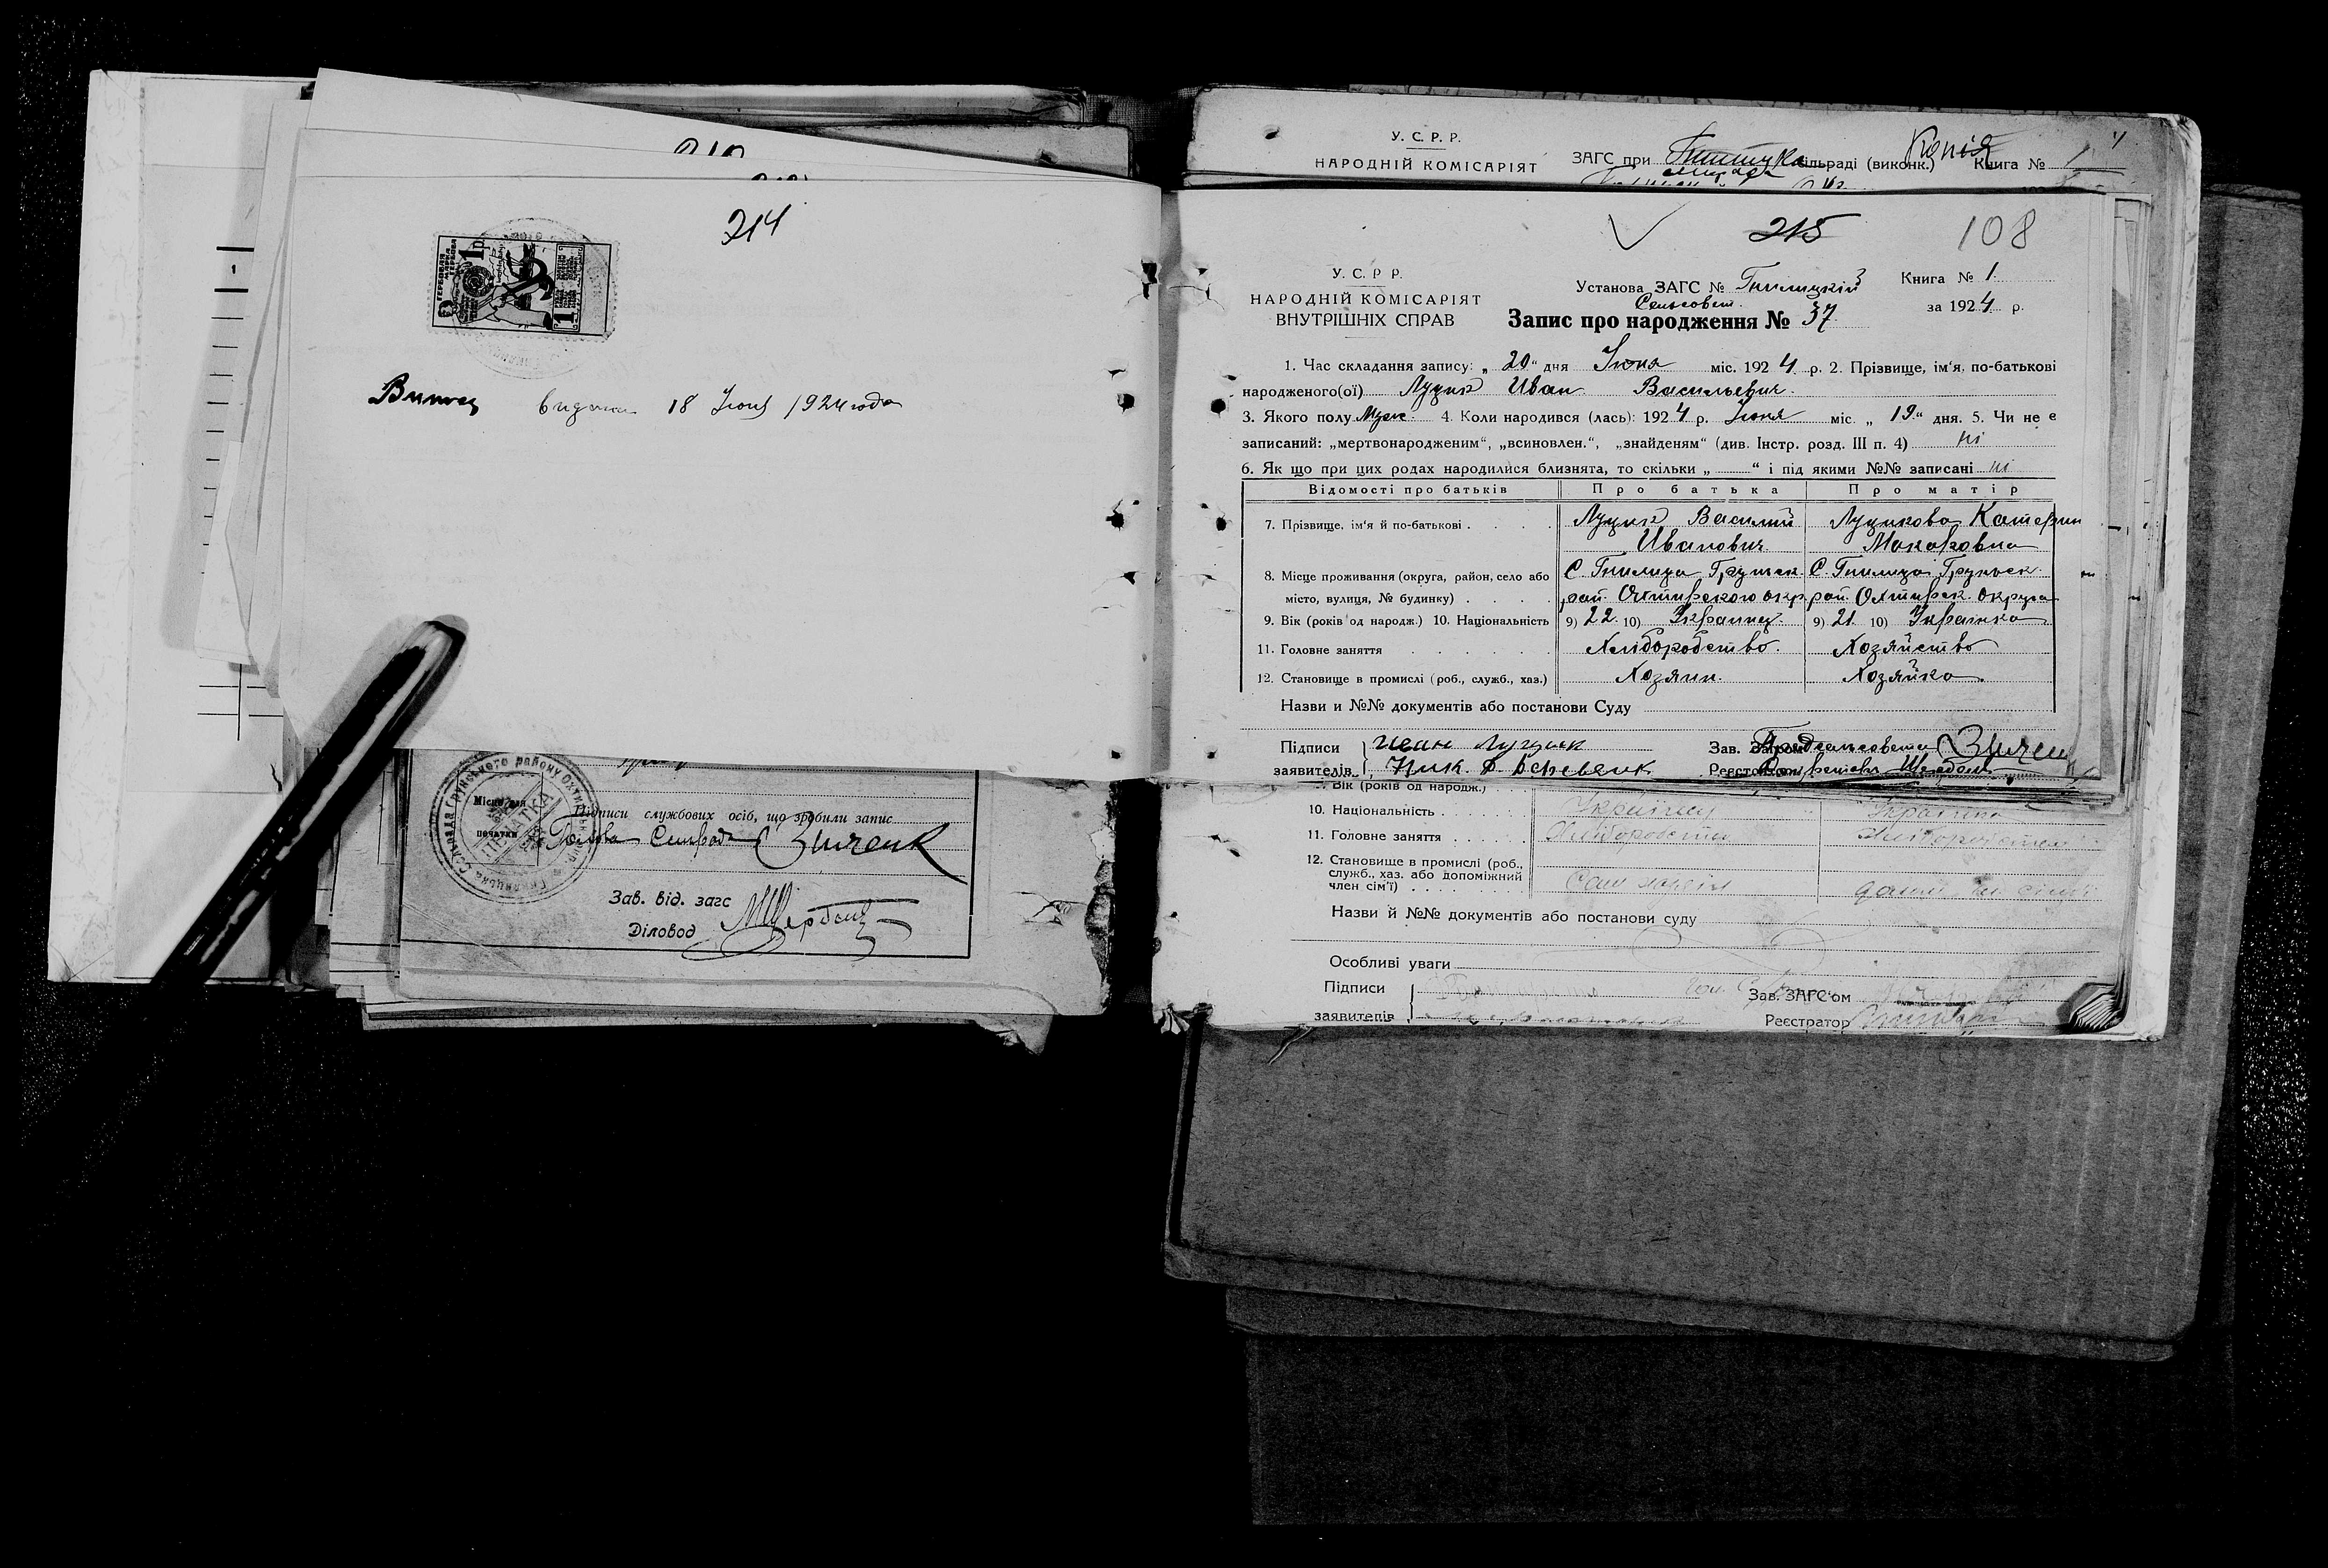 214
ГЕРБОВАЯ МАРКА
1 р
1
видана 18 Июня 1924 года
Підписи службових осіб, що зробили запис
Місце для
печатки
Голова Сільради Зинченк
Зав. від. загс
Діловод
У. С. Р. Р.
НАРОДНІЙ КОМІСАРІЯТ
ЗАГС при сільраді (виконк.) Книга № 1
Копія
215 108
У. С. Р. Р.
НАРОДНІЙ КОМІСАРІЯТ
ВНУТРІШНІХ СПРАВ
Установа ЗАГС № Гнилицкій Книга № 1
Сельсовет за 1924 р.
Запис про народження № 37
1. Час складання запису: „20“ дня Июня міс. 1924 р. 2. Прізвище, ім'я, по-батькові
народженого(ої) Луцик Иван Васильевич.
3. Якого полу Муж. 4. Коли народився (лась): 1924 р. Июня міс. „19“ дня. 5. Чи не є
записаний: „мертвонародженим“, „всиновлен.“, „знайденям“ (див. Інстр. розд. III п. 4) ні
6. Як що при цих родах народилися близнята, то скільки „ “ і під якими №№ записані ні
Відомості про батьків Про батька Про матір
7. Прізвище, ім'я й по-батькові Луцик Василий Луцикова Катерин
Иванович Макаровна
8. Місце проживання (округа, район, село або С. Гнилица Грунск. С. Гнилица Грунск
місто, вулиця, № будинку) рай. Охтирского окр. рай. Охтирск. округа
9. Вік (років од народж.) 10. Національність 9) 22 10) Украинец 9) 21 10) Українка
11. Головне заняття Хлібородство. Хозяйство
12. Становище в промислі (роб., служб., хаз.) Хозяин. Хозяйка
Назви и №№ документів або постанови Суду
Підписи Иван Луцик Зав. Загсом Предсельсовета Зинченк
заявителів Ник. Реєстратор
Вік (років од народж.)
10. Національність Українец Українка
11. Головне заняття Хлібородство Хлібородство
12. Становище в промислі (роб.,
служб., хаз. або допоміжний
член сім'ї)
Назви й №№ документів або постанови суду
Особливі уваги
Підписи
Зав. ЗАГС'ом
заявителів
Реєстратор